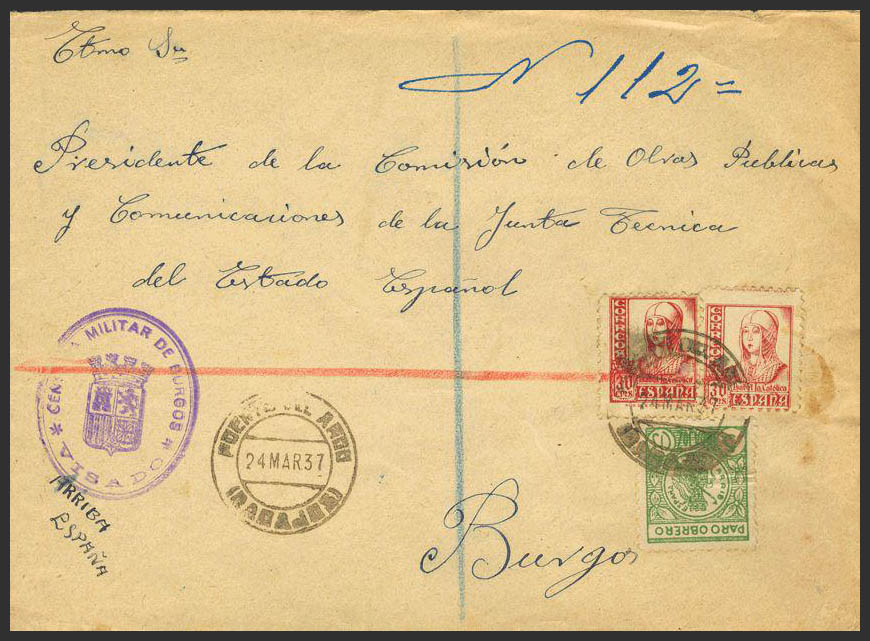 Etmo Sr
N 112=
Presidente de la Comisión de Obras Publicas
y Comunicaciones de la Junta Tecnica
del Estado Español
CORREOS
30
CTS
ESPAÑA
CORREOS
30
CTS
Isabel la Católica
ESPAÑA
24 MAR 37
CENSURA MILITAR DE BURGOS
VISADO
FUENTE DEL ARCO
(BADAJOZ)
24 MAR 37
ARRIBA
ESPAÑA
ARRIBA
ESPAÑA
PARO OBRERO
Burgos